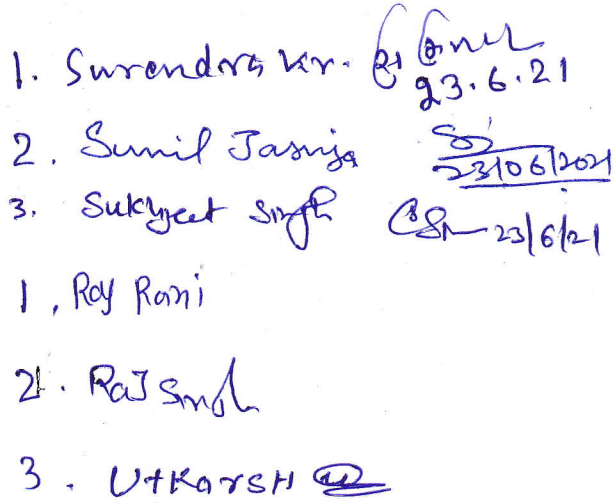 1. Surendra Kr. 23.6.21
2. Sunil Jasuja 23/06/2021
3. Sukhjeet Singh 23/6/21
1, Raj Rani
2. Raj Singh
3. UtKarsH